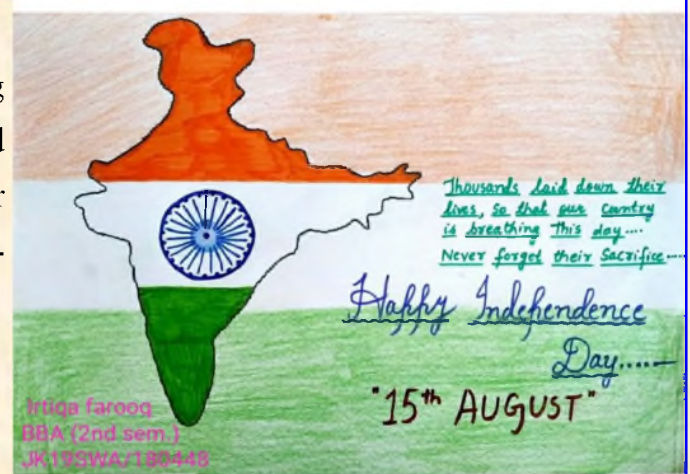 Thousands laid down their
lives, so that our country
is breathing this day....
Never forget their sacrifice.....
Happy Independence
Day......
"15th AUGUST"
Irtiqa farooq
BBA (2nd sem.)
JK19SWA/180448